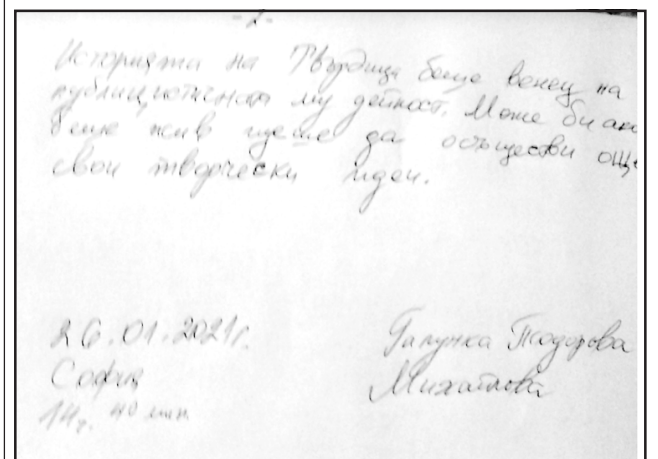 -2-
Историята на Твърдица беше венец на
публицистичната му дейност. Може би ако
беше жив щеше да осъществи още
свои творчески идеи.
26.01.2021г.
София
14ч. 40 мин.
Галунка Тодорова
Михайлова